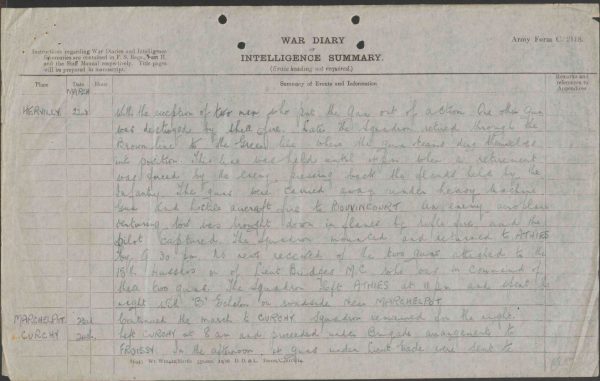 WAR DIARY
or
INTELLIGENCE SUMMARY.
(Erase heading not required.)
Army Form C. 2118.
Instructions regarding War Diaries and Intelligence
Summaries are contained in F. S. Regs., Part II.
and the Staff Manual respectively. Title pages
will be prepared in manuscript.
Place Date Hour Summary of Events and Information Remarks and references to Appendices
MARCH
HERVILLY 22nd With the exception of two men who put the gun out of action. One other gun
was destroyed by shell fire. Later the Squadron retired through the
Brown line to the Green line where the gun teams dug themselves
into position. This line was held until pm. when a retirement
was forced by the enemy pressing back the flanks held by the
Infantry. The guns were carried away under heavy machine
gun and hostile aircraft fire to BOUVINCOURT. An enemy aeroplane
venturing low was brought down in flames by rifle fire and the
pilot captured. The Squadron mounted and returned to ATHIES
30 pm. No news received of the two guns attached to the
15th Hussars or of Lieut Bridges M.C. who was in command of
these two guns. The Squadron left ATHIES at pm and spent the
night with "B" Echelon on roadside near MARCHELPOT.
MARCHELPOT. 23rd Continued the march to CURCHY Squadron remained for the night.
CURCHY 24th Left CURCHY at 8 am and proceeded under Brigade arrangements to
FROISSY. In the afternoon guns under Lieut were sent to